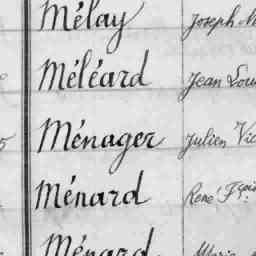 Mélay Joseph
Méléard Jean Lou
Ménager Julien Vic
Ménard René Fçois
Ménard Marie